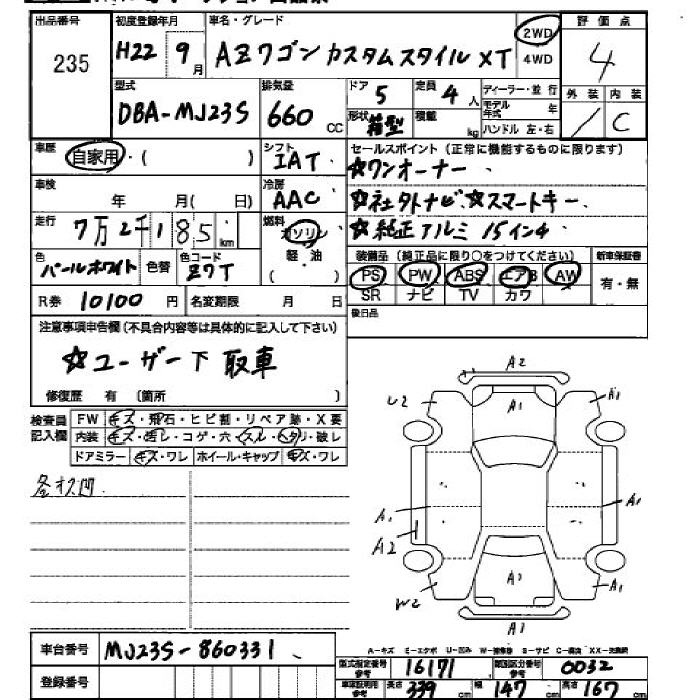 出品番号
235
初度登録年月
H22 9月
車名・グレード
AZワゴン カスタムスタイル XT
2WD
4WD
評価点
4
型式
DBA-MJ23S
排気量
660 cc
ドア
5
定員
4人
形状
箱型
積載
kg
ディーラー・並行
モデル年式 年
ハンドル 左・右
外装
内装
C
車歴
自家用・( )
シフト
IAT
セールスポイント(正常に機能するものに限ります)
☆ワンオーナー
☆社外ナビ ☆スマートキー
☆純正アルミ 15インチ
車検
年 月( 日)
冷房
AAC
走行
7万2千185km
燃料
ガソリン
軽・油
( )
色
パールホワイト
色替
色コード
Z7T
装備品(純正品に限り○をつけてください)
PS PW ABS エアB AW
SR ナビ TV カワ
新車保証書
有・無
R券
10100円
名変期限 月 日
後日品
注意事項申告欄(不具合内容等は具体的に記入して下さい)
☆ユーザー下取車
修復歴 有(箇所 )
検査員記入欄
FW キズ・飛石・ヒビ割・リペア跡・X要
内装 キズ・汚レ・コゲ・穴・スレ・ヘタリ・破レ
ドアミラー キズ・ワレ ホイール・キャップ キズ・ワレ
A2
U2
A1
A1
A1
A1
A2
W2
A1
A1
車台番号
MJ23S-860331
登録番号
A-キズ E-エクボ U-凹み W-補修跡 S-サビ C-腐食 XX-交換済
型式指定番号参考
16171
類別区分番号参考
0032
車検証明用参考
長さ
339cm
幅
147cm
高さ
167cm